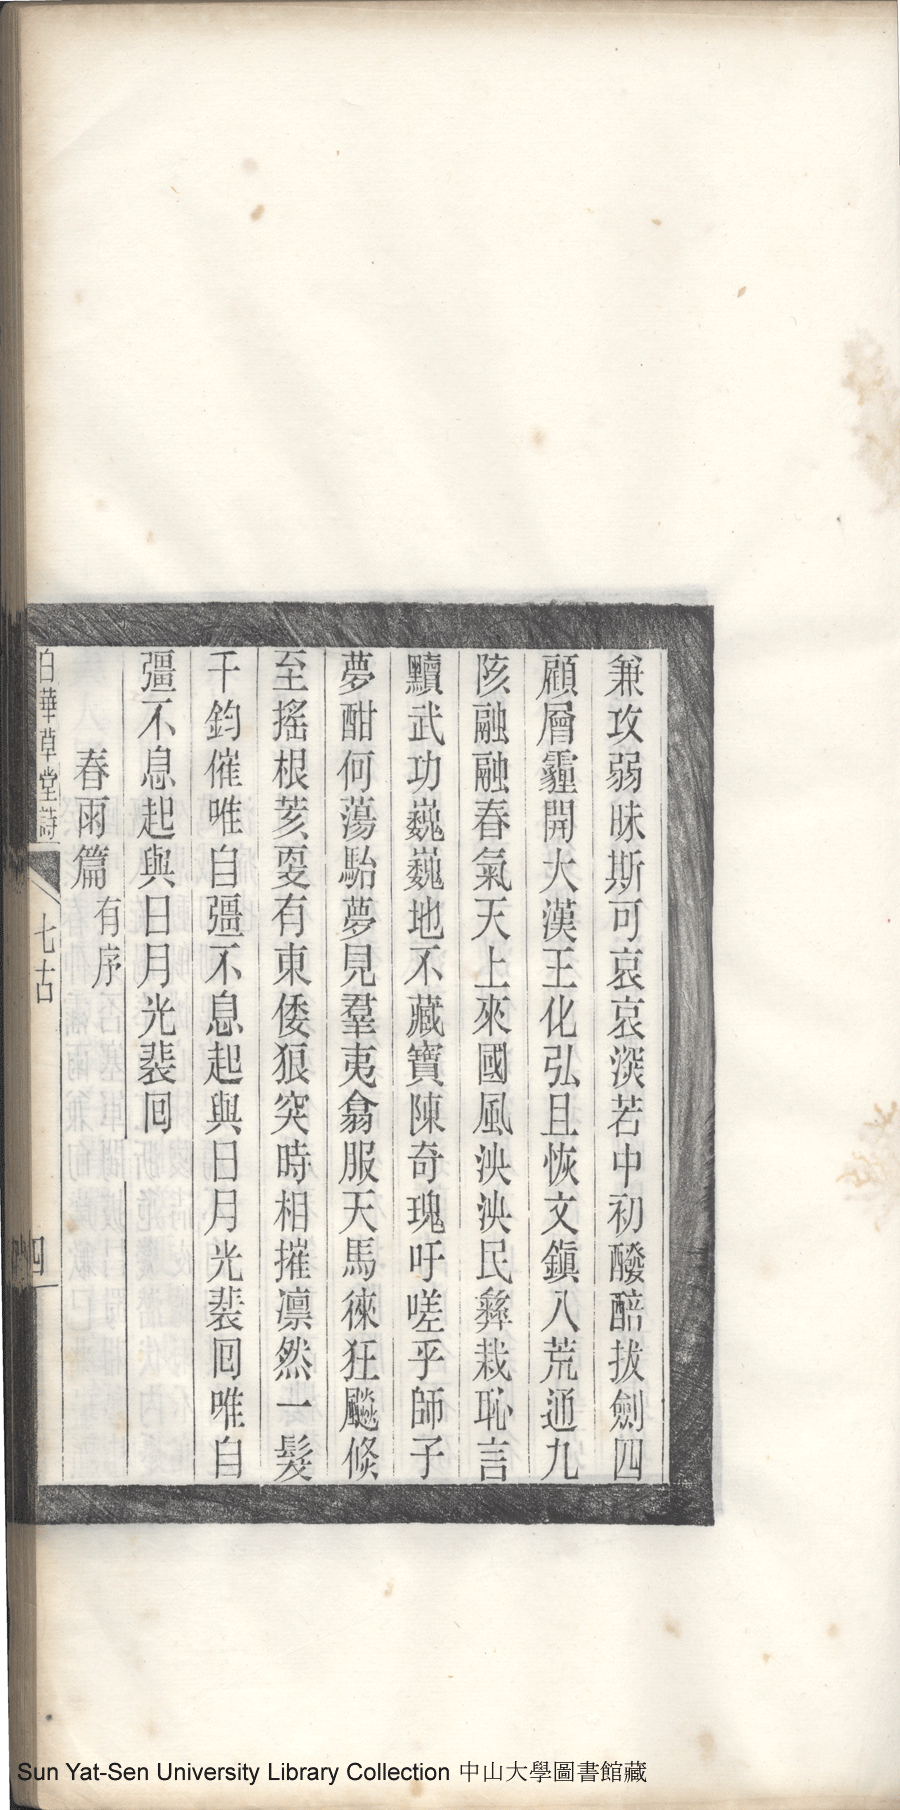 兼攻弱昧斯可哀哀深若中初醱醅拔劍四
顧層霾開大漢王化弘且恢文鎮八荒通九
陔融融春氣天上來國風泱泱民彝栽恥言
黷武功巍巍地不藏寶陳奇瑰吁嗟乎師子
夢酣何蕩駘夢見羣夷翕服天馬徠狂飈倏
至搖根荄耍有東倭狼突時相摧凛然一髮
千鈞催唯自彊不息起與日月光裴回唯自
彊不息起與日月光裴回
春雨篇 有序
白華草堂詩 七古 四
Sun Yat-Sen University Library Collection 中山大學圖書館藏